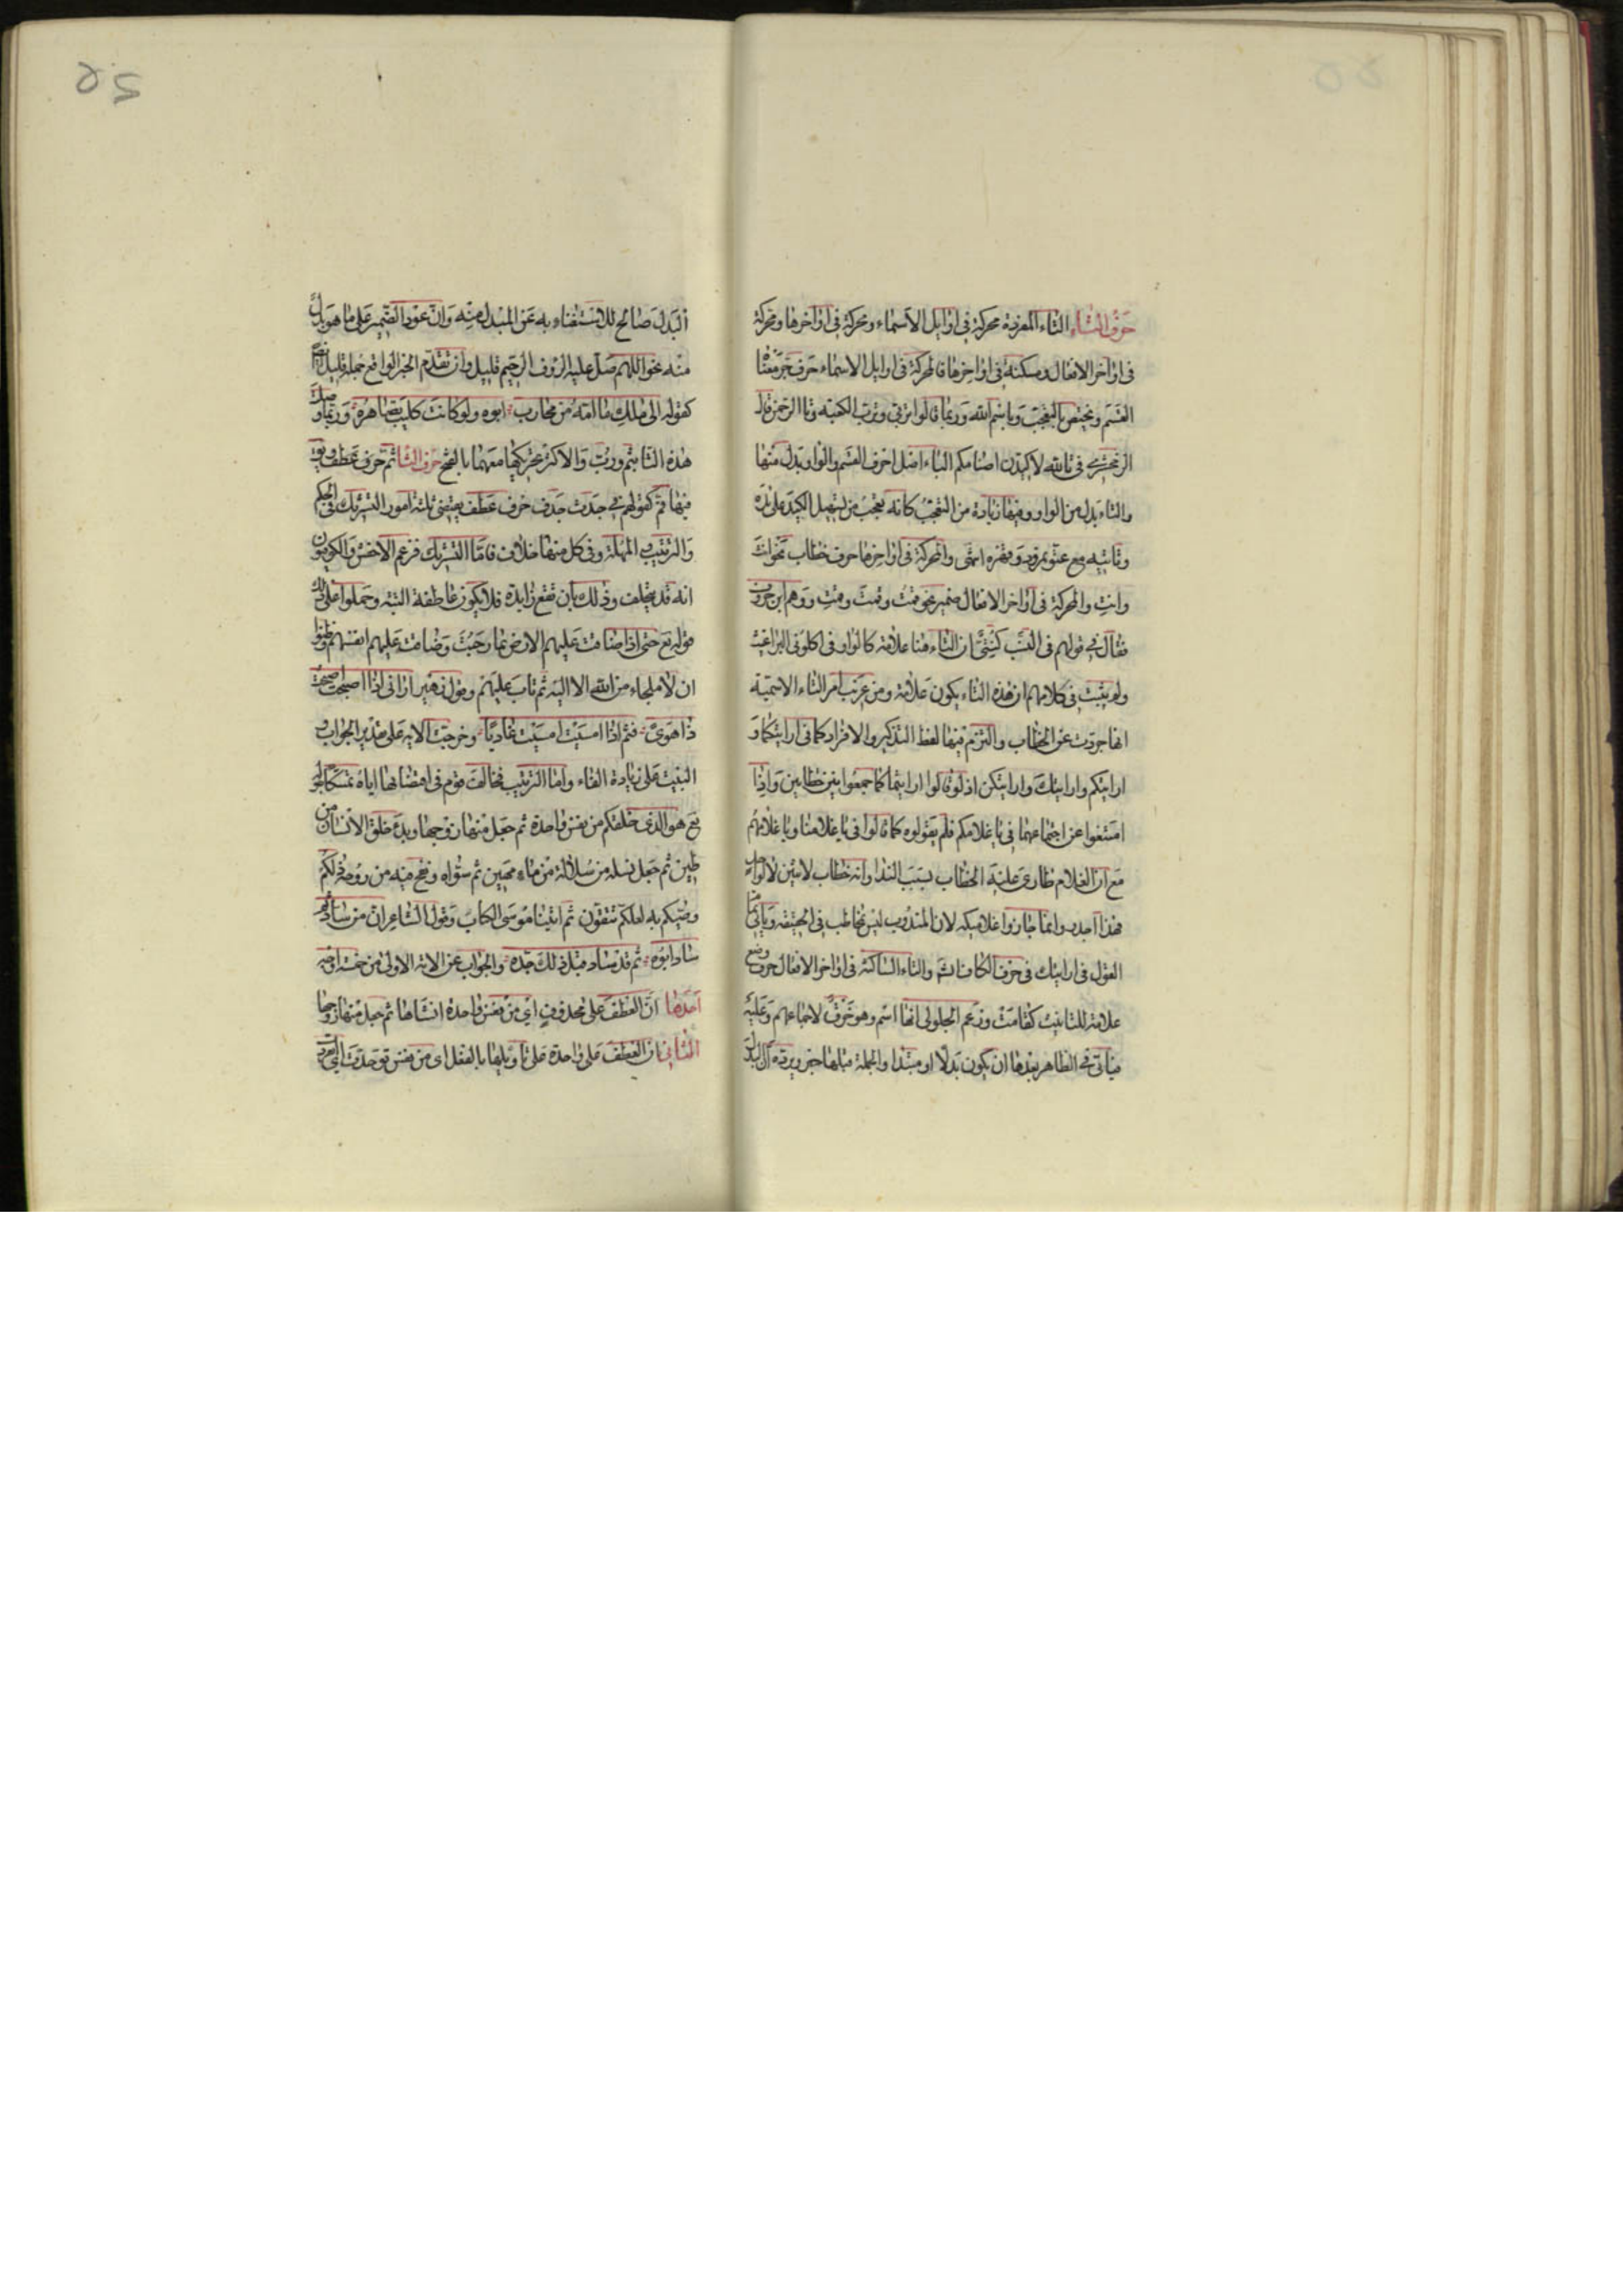 حرف التاء التاء المفردة محركة فى اوايل الاسماء ومحركة فى اواخرها ومحركة
فى اواخر الافعال ومسكنة فى اواخرها فالمحركة فى اوايل الاسماء حرف جر معناها
القسم وتختص بالتعجب وباسم الله وربما قالوا تربى وترب الكعبة وتا الرحمن قال
الزمخشرى فى تالله لاكيدن اصنامكم الباء اصل احرف القسم والواو بدل منها
والتاء بدل من الواو وفيها زيادة من التعجب كانه تعجب من تسهيل الكيد على يده
وتاتيه مع عتو نمرود وقهره انتهى والمحركة فى اواخرها حرف خطاب نحو انت
وانت والمحركة فى اواخر الافعال ضمير نحو قمت وقمت وقمت ووهم ابن خروف
فقال فى قولهم فى النسب كنتى ان التاء هنا علامة كالواو فى اكلونى البراغيث
ولم يثبت فى كلامهم ان هذه التاء يكون علامة ومن غريب امر التاء الاسمية
انها جردت عن الخطاب والتزم فيها لفظ التذكير والافراد كما فى ارايتكما و
ارايتكم وارايتك وارايتكن اذ لو قالوا ارايتما كما جمعوا بين خطابين واذا
امتنعوا عن اجتماعهما فى يا غلامكم فلم يقولوه كما قالوا فى يا غلامنا ويا غلامهم
مع ان الغلام طارى عليه الخطاب بسبب الندا وانه خطاب لاثنين لا لواحد
فهذا اجدر وانما جاز واغلامكيه لان المندوب ليس مخاطب فى الحقيقة وياتى تمام
القول فى ارايتك فى حرف الكاف ان شاء والتاء الساكنة فى اواخر الافعال حرف وضع
علامة للتانيث كقامت وزعم الجلولى انها اسم وهو خرق لاجماعهم وعليه
فياتى فى الظاهر بعدها ان يكون بدلا او مبتدا والجملة قبلها خبر ويرده ان البدل
البدل صالح للاستغناء به عن المبدل منه وان عود الضمير على ما هو بدل
منه نحو اللهم صل عليه الروف الرحيم قليل وان تقدم الخبر الواقع جملة قليل ايضا
كقوله الى ملك ما امه من محارب ابوه ولو كانت كليب تصاهره وربما وصلت
هذه التا بثم ورب والاكثر تحريكها معهما بالفتح حرف الثا ثم حرف عطف ويق
فيها فم كقولهم فى جدث جدف حرف عطف يقتضى ثلثة امور التشريك فى الحكم
والترتيب والمهلة وفى كل منها خلاف فاما التشريك فزعم الاخفش والكوفيون
انه قد يتخلف وذلك بان تقع زايدة فلا يكون عاطفة البتة وحملوا على ذلك
قوله تع حتى اذا ضاقت عليهم الارض بما رحبت وضاقت عليهم انفسهم وظنوا
ان لا ملجاء من الله الا اليه ثم تاب عليهم وقول زهير ارانى اذا اصبحت اصبحت
ذا هوى فثم اذا امسيت امسيت غاديا وخرجت الاية على تقدير الجواب و
البيت على زيادة الفاء واما الترتيب فخالف قوم فى اقتضائها اياه تمسكا بقوله
تع هو الذى خلقكم من نفس واحدة ثم جعل منها زوجها وبدء خلق الانسان من
طين ثم جعل نسله من سلالة من ماء مهين ثم سواه ونفخ فيه من روحه ذلكم
وصيكم به لعلكم تتقون ثم اتينا موسى الكتاب وقول الشاعر ان من ساد ثم
ساد ابوه ثم قد ساد قبل ذلك جده والجواب عن الاية الاولى من خمسة اوجه
احدها ان العطف على محذوف اى من نفس واحدة انشاها ثم جعل منها زوجها
الثانى ان العطف على واحدة على تاويلها بالفعل اى من نفس توحدت اى انفردت